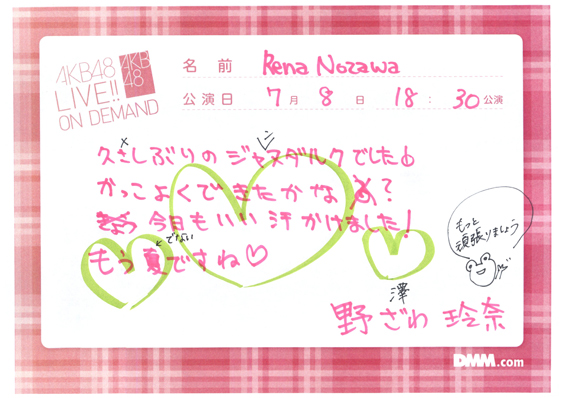 AKB48
LIVE!!
ON DEMAND
AKB
48
名前 Rena Nozawa
公演日 7月8日 18:30公演
久さしぶりのジャスダルクでした♪
シ
かっこよくできたかなあ?
今日もいい汗かけました!
とでない
もう夏ですね♡
もっと
頑張りましょう
澤
野ざわ 玲奈
DMM.com